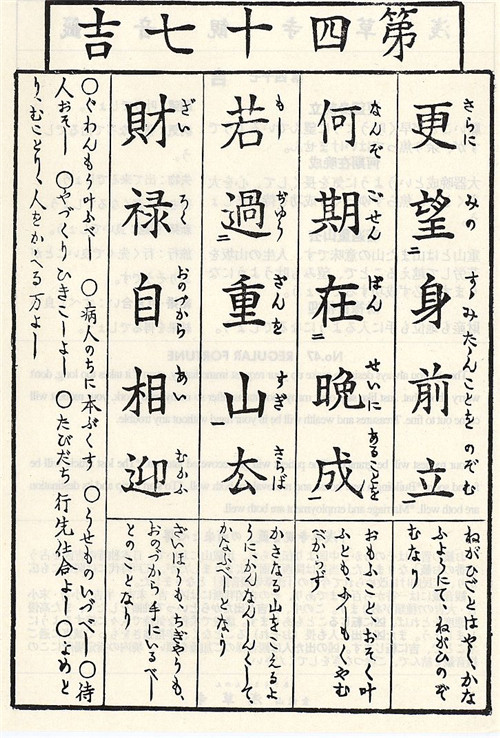 第四十七吉
更望身前立
さらに みの すゝみたゝんことを のぞむ
ねがひごとはやくかな
ふようにて、ねがひのぞ
むなり
何期在晩成
なんぞ ごせん はん せいに あることを
おもふことおそく叶
ふともくやむ
べからず
若過重山去
もし ざんを すぎ さらば
かさなる山をこえるよ
うにかんなんしんくして、
かなふべしとなり
財禄自相迎
ざい ろく おのづから あい むかふ
ざいほうもちぎやうも、
おのづから手にいるべし
とのことなり
○ぐわんもう叶ふべし ○病人のちに本ぷくす ○うせものいづべし ○待
人おそし ○やづくりひきこしよし ○たびだち行先仕合よし ○よめと
り、むことり、人をかゝへる万よし